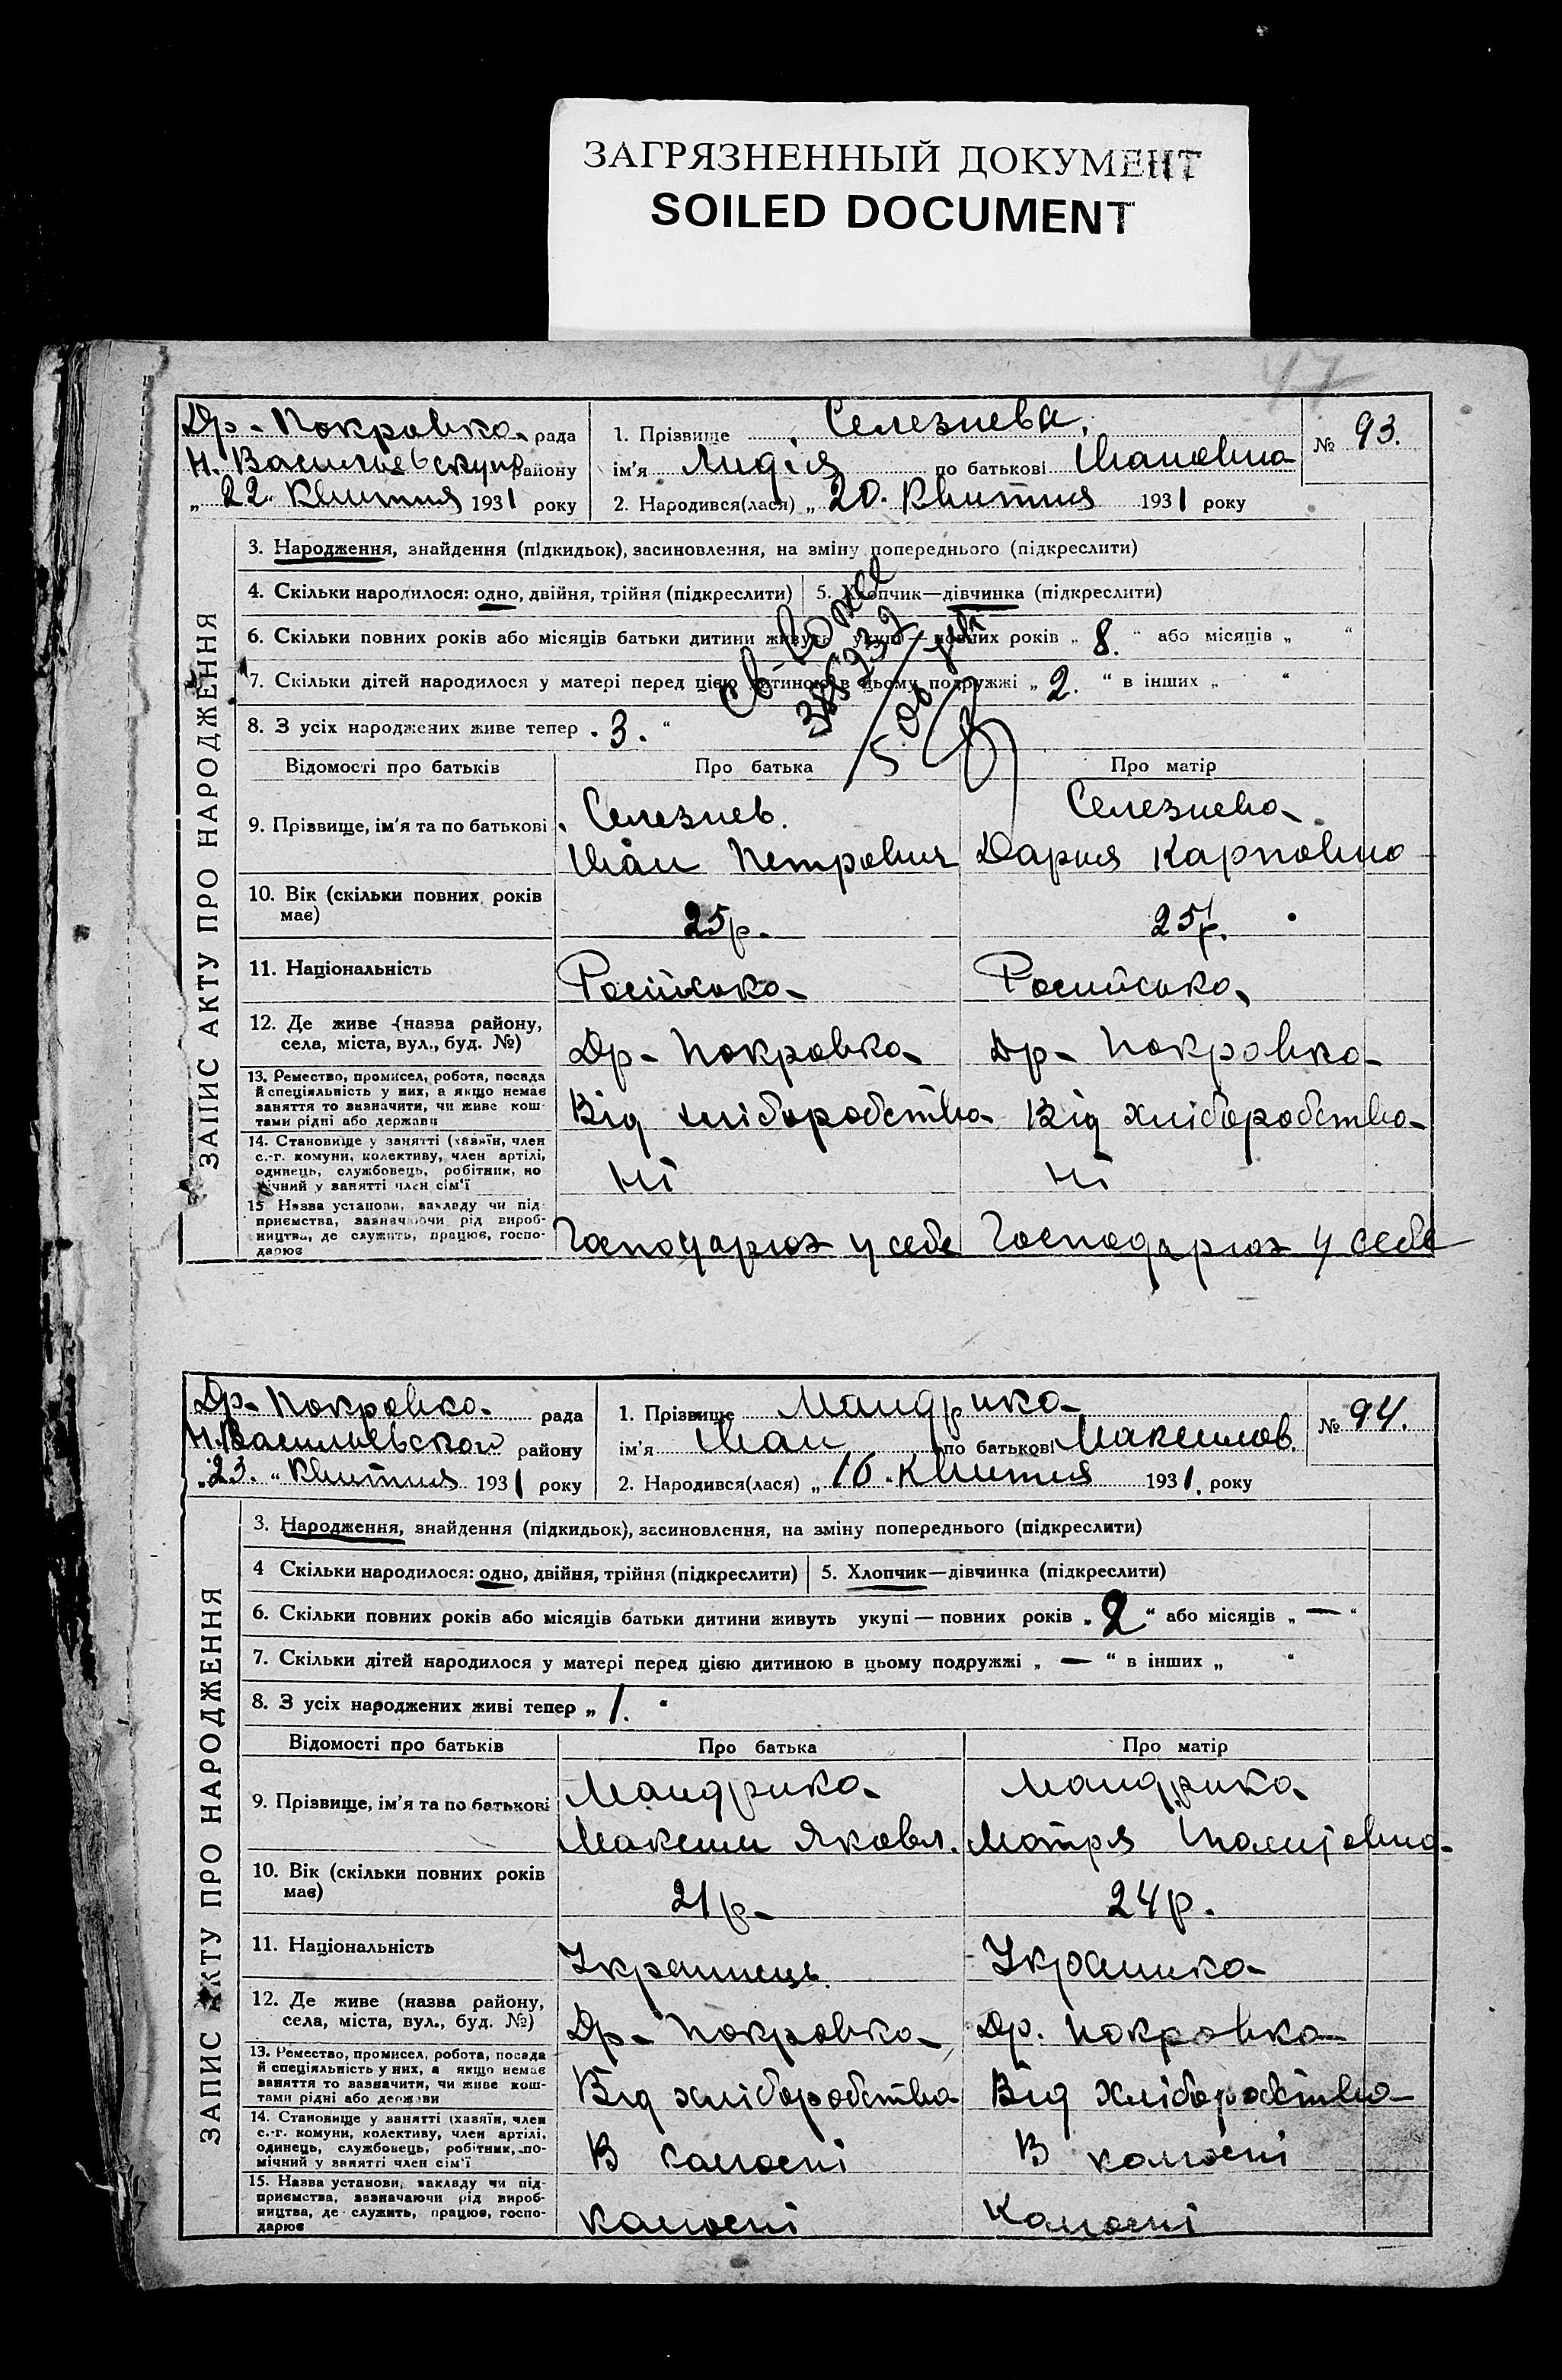 ЗАГРЯЗНЕННЫЙ ДОКУМЕНТ
SOILED DOCUMENT
47
Др-Покровка рада
Н. Васильевскиго району
„22„ Квитня 1931 року
1. Прізвище Селезнева
ім'я Лидія по батькові Ивановна
2. Народився(лася) „20. Квитня 1931 року
№ 93.
ЗАПИС АКТУ ПРО НАРОДЖЕННЯ
3. Народження, знайдення (підкидьок), засиновлення, на зміну попереднього (підкреслити)
4. Скільки народилося: одно, двійня, трійня (підкреслити) 5. Хлопчик—дівчинка (підкреслити)
6. Скільки повних років або місяців батьки дитини живуть укупі—повних років „8.“ або місяців „ “
7. Скільки дітей народилося у матері перед цією дитиною в цьому подружжі „2.“ в інших „ “
8. З усіх народжених живе тепер „3.“
Відомості про батьків Про батька Про матір
9. Прізвище, ім'я та по батькові Селезнев. Селезнева
Иван Петрович Дария Карповна
10. Вік (скільки повних років має) 25р. 25р.
11. Національність Росийсько Росийсько
12. Де живе (назва району, села, міста, вул., буд. №) Др-Покровка Др-Покровка
13. Ремество, промисел, робота, посада й спеціяльність у них, а якщо немає заняття то зазначити, чи живе коштами рідні або держави Від хліборобства Від хліборобства
14. Становище у занятті (хазяїн, член с.-г. комуни, колективу, член артілі, одинець, службовець, робітник, помічний у занятті член сім'ї Ні Ні
15 Назва установи, закладу чи підприємства, зазначаючи рід виробництва, де служить, працює, господарює Господарюэ у себе Господарюэ у себе
Др-Покровка рада
Н.Васильевского району
„23.„ Квитня 1931 року
1. Прізвище Мандрика
ім'я Иван по батькові Максимов.
2. Народився(лася) „16„ Квитня 1931. року
№ 94.
ЗАПИС АКТУ ПРО НАРОДЖЕННЯ
3. Народження, знайдення (підкидьок), засиновлення, на зміну попереднього (підкреслити)
4 Скільки народилося: одно, двійня, трійня (підкреслити) 5. Хлопчик—дівчинка (підкреслити)
6. Скільки повних років або місяців батьки дитини живуть укупі—повних років „2“ або місяців „—“
7. Скільки дітей народилося у матері перед цією дитиною в цьому подружжі „—“ в інших „ “
8. З усіх народжених живі тепер „1.“
Відомості про батьків Про батька Про матір
9. Прізвище, ім'я та по батькові Мандрика Мандрика
Максим Яковл. Мотря
10. Вік (скільки повних років має) 21р. 24р.
11. Національність Украинець. Украинка
12. Де живе (назва району, села, міста, вул., буд. №) Др-Покровка Др. Покровка
13. Ремество, промисел, робота, посада й спеціяльність у них, а якщо немає заняття то зазначити, чи живе коштами рідні або держави Від хліборобства Від хліборобства
14. Становище у занятті (хазяїн, член с.-г. комуни, колективу, член артілі, одинець, службовець, робітник, помічний у занятті член сім'ї В калоспі В калоспі
15. Назва установи, закладу чи підприємства, зазначаючи рід виробництва, де служить, працює, господарює калоспі Калоспі